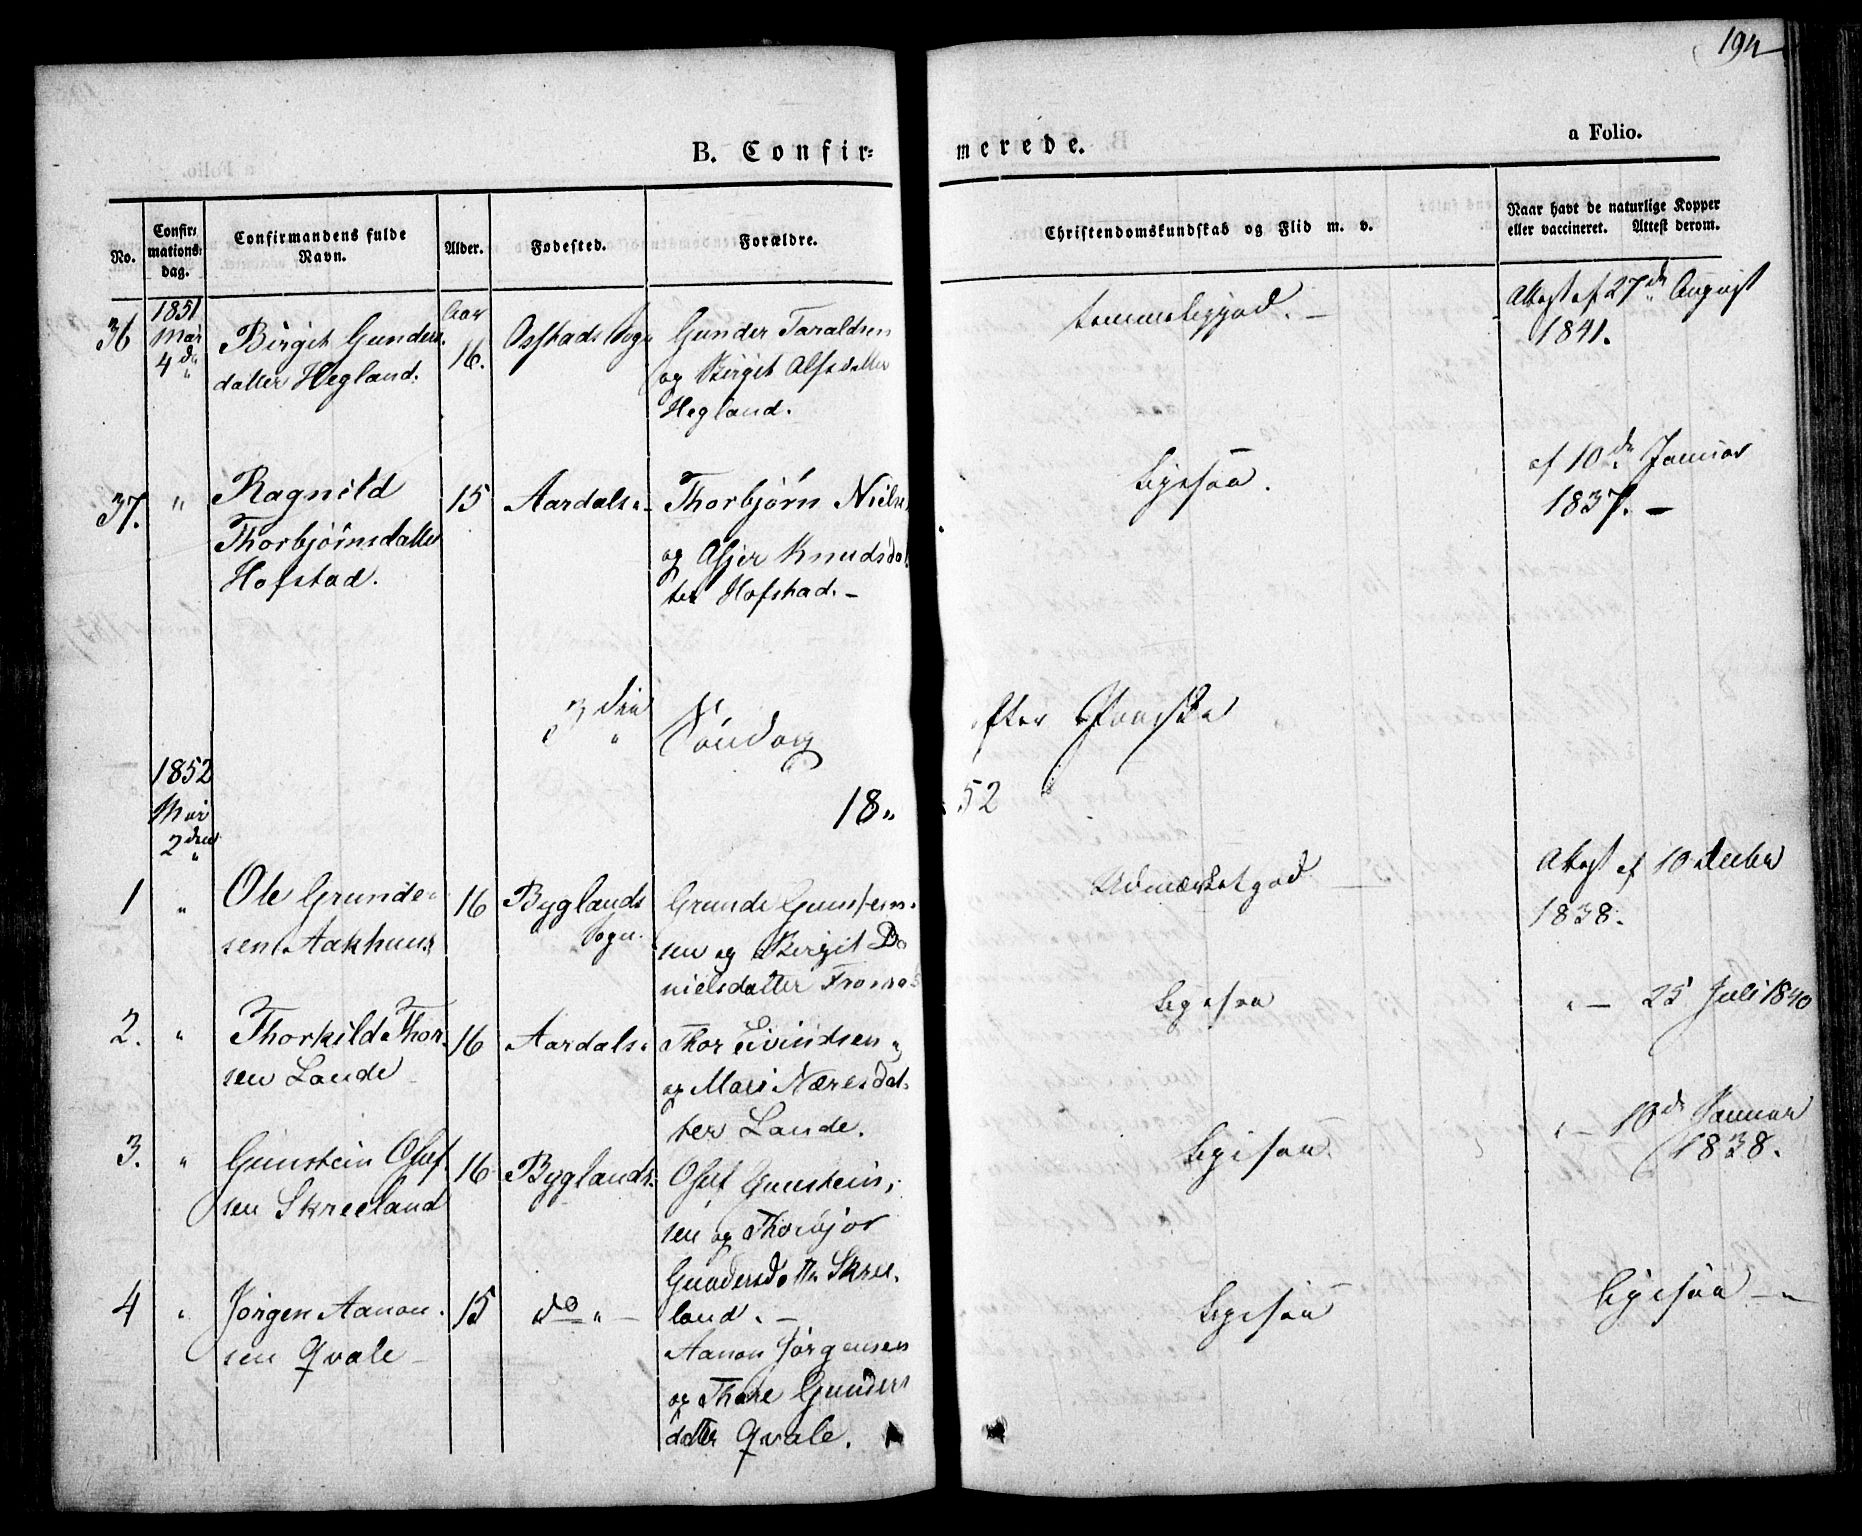 194
B. Confir=
merede.
a Folio.
No.
Confir=
mations=
dag.
Confirmandens fulde
Navn.
Alder.
Fødested.
Forældre.
Christendomskundskab og Flid m. v.
Naar havt de naturlige Kopper
eller vaccineret. Attest derom.
36
1851
Mai
4de
Birgit Gunders-
datter Hegland.
Aar
16.
Gunder Taraldsen
og Birgit Alfsdatter
Hegland.
temmeliggod. –
Attest af 27de August
1841.
37.
"
Ragnild
Thorbjörnsdatter
Hofstad.
15
Aardals "
Thorbjörn Niels
og Asjer Knudsdat
ter Hofstad. –
Ligesaa.
af 10de Januar
1837. –
3den Söndag
efter Paaske
1852
Mai
2den
18 "
52
1
"
Ole Grunde-
sen Aakhuus
16
Byglands
Sogn.
Grunde Gunstein-
sen og Birgit Da
nielsdatter
Udmærket god –
Attest af 10 Decbr
1838.
2.
"
Thorkild Thor-
sen Lande
16
Aardals "
Thor Eivindsen
og Mari Næresdat-
ter Lande.
Ligesaa
" – 25 Juli 1840
3.
"
Gunstein Oluf
sen Skreeland
16
Byglands.
Oluf Gunstein-
sen og
Gundersdatter Skree-
land. –
Ligesaa
" – 10de Januar
1838.
4
"
Jörgen Aanon-
sen Qvale –
15
do " –
Aanon Jörgensen
og Thore Gunders
datter Qvale.
Ligesaa
Ligesaa – "